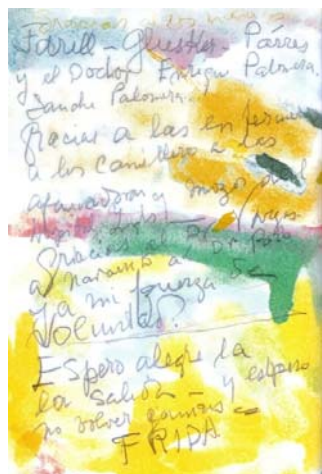 Gracias a los médicos
Farill - Glusker - Párres
y el Doctor Enrique Palomera
Sanchez Palomera
Gracias a las enfermeras
a los camilleros a las
afanadoras y mozos del
Gracias al Dr Vargas
a Navarro a Dr Polo
y a mi fuerza de
Voluntad.
Espero alegre la
la salida - y espero
no volver jamás -
FRIDA